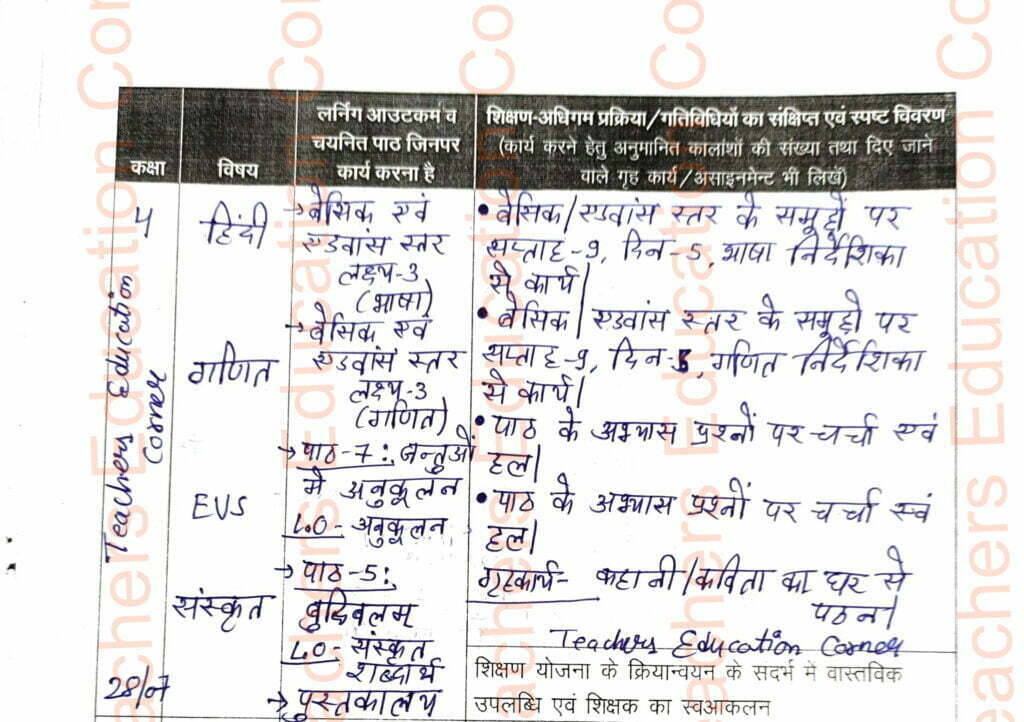 लर्निंग आउटकम व
चयनित पाठ जिनपर
कार्य करना है
शिक्षण-अधिगम प्रक्रिया/गतिविधियों का संक्षिप्त एवं स्पष्ट विवरण
(कार्य करने हेतु अनुमानित कालांशों की संख्या तथा दिए जाने
वाले गृह कार्य/असाइनमेन्ट भी लिखें)
कक्षा
विषय
4
हिंदी
→बेसिक एवं
एडवांस स्तर
लक्ष्य-3
(भाषा)
• बेसिक/एडवांस स्तर के समूहों पर
सप्ताह-9, दिन-5, भाषा निर्देशिका
से कार्य|
गणित
→बेसिक एवं
एडवांस स्तर
लक्ष्य-3
(गणित)
• बेसिक/एडवांस स्तर के समूहों पर
सप्ताह-9, दिन-5, गणित निर्देशिका
से कार्य|
EVS
→पाठ-7:, जन्तुओं
में अनुकूलन
L.O- अनुकूलन
• पाठ के अभ्यास प्रश्नों पर चर्चा एवं
हल|
संस्कृत
→ पाठ-5:,
बुद्धिबलम्
L.O- संस्कृत
शब्दार्थ
• पाठ के अभ्यास प्रश्नों पर चर्चा एवं
हल|
28/07
→ पुस्तकालय
गृहकार्य- कहानी/कविता का घर से
पठन|
Teachers Education Corner
शिक्षण योजना के क्रियान्वयन के सदर्भ में वास्तविक
उपलब्धि एवं शिक्षक का स्वआकलन
Teachers Education
Corner
Teachers Education Corner